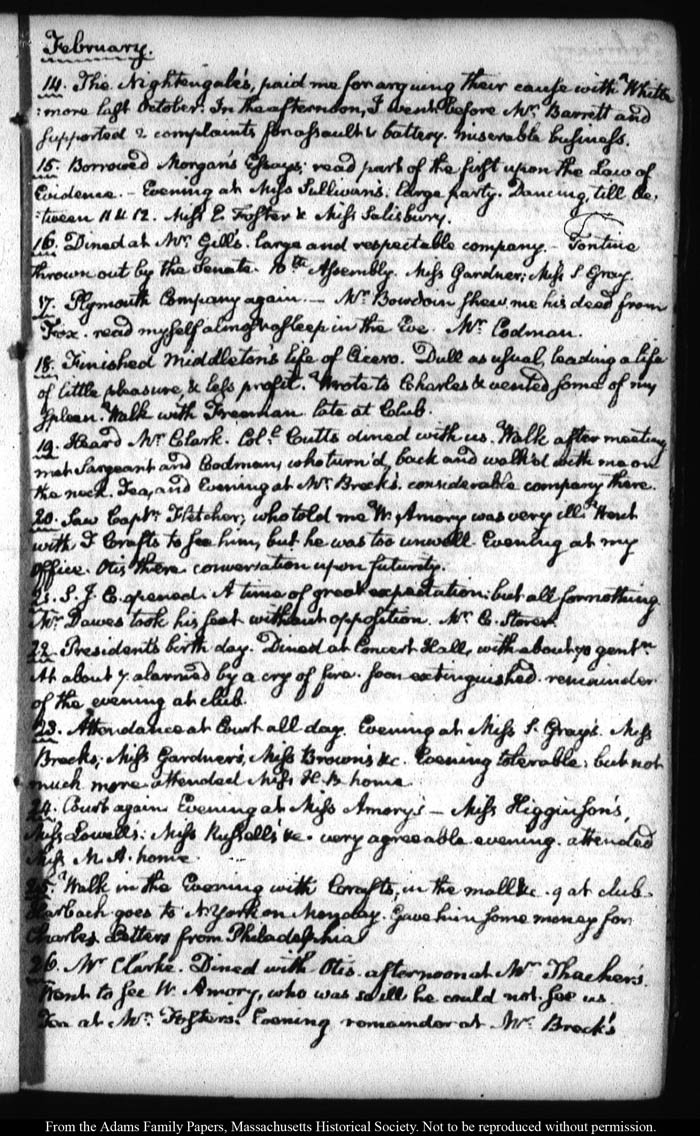 February.
14. The Nightengale's, paid me for arguing their cause with Whitte
:more last October. In the afternoon, I went before Mr. Barrett and
supported 2 complaints for assault & battery. miserable business.
15. Borrowed Morgan's Essays; read part of the first upon the Law of
Evidence. — Evening at Miss Sullivan's. large party. Dancing, till be,
:tween 11 & 12. Miss E. Foster & Miss Salisbury.
16. Dined at Mr. Gill's. large and respectable company. — Tontine
thrown out by the Senate. Assembly. Miss Gardner; Miss S Gray.
17. Plymouth Company again. — Mr. Bowdoin shew me his deed from
Fox. read myself almost asleep in the Eve. Mr. Codman.
18. Finished Middleton's life of Cicero. Dull as usual, leading a life
of little pleasure & less profit. Wrote to Charles & vented some of my
spleen. Walk with Freeman. late at Club.
19. Heard Mr. Clark. Coll. Coutts dined with us. Walk after meeting
met Sargeant and Codman, who turn'd, back and walk'd with me on
the neck. Tea, and Evening at Mr. Breck's. considerable company there.
20. Saw Captn. Fletcher; who told me W. Amory was very ill. Went
with T Crafts to see him, but he was too unwell. Evening at my
office. Otis there. conversation upon futurity.
21. S. J. C. opened. A time of great expectation: but all for nothing
Mr. Dawes took his seat without opposition. Mr. C. Storer.
22. President's birth day. Dined at Concert Hall, with about 70 gentn.
At about 7. alarmed by a cry of fire. soon extinguished. remainder
of the evening at club.
23. Attendance at Court all day. Evening at Miss S. Gray's. Miss
Breck's; Miss Gardner's, Miss Brown's &c. Evening tolerable: but not
much more. attended Miss H. B home.
24. Court again. Evening at Miss Amory's — Miss Higginson's,
Miss Lowell's: Miss Russell's &c. very agreeable evening. attended
Miss M A. home.
25. Walk in the Evening with Crafts, in the mall &c. 9 at club.
Harbach goes to N. York on Monday. Gave him some money for
Charles. Letters from Philadelphia
26. Mr Clarke. Dined with Otis. afternoon at Mr. Thacher's.
Went to see W. Amory, who was so ill he could not see us.
Tea at Mr. Foster's. Evening remainder at Mr. Breck's
From the Adams Family Papers, Massachusetts Historical Society. Not to be reproduced without permission.